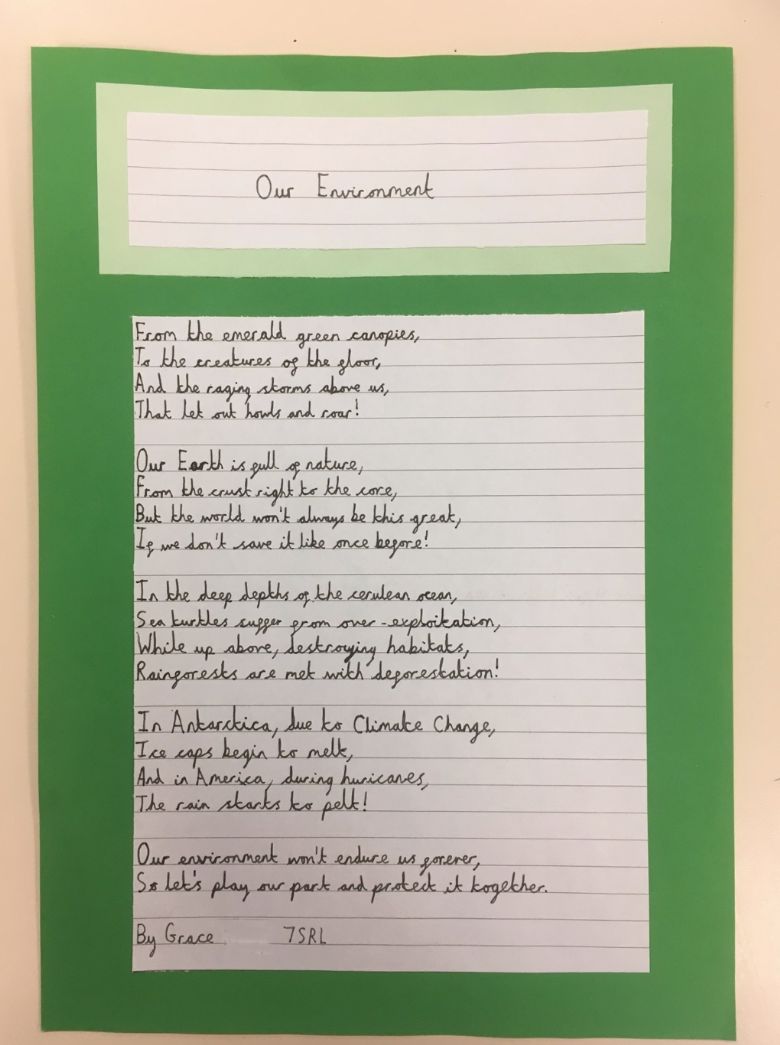 Our Environment
From the emerald green canopies,
To the creatures of the floor,
And the raging storms above us,
That let out howls and roar!
Our Earth is full of nature,
From the crust right to the core,
But the world won't always be this great,
If we don't save it like once before!
In the deep depths of the cerulean ocean,
Sea turtles suffer from over-exploitation,
While up above, destroying habitats,
Rainforests are met with deforestation!
In Antarctica, due to Climate Change,
Ice caps begin to melt,
And in America, during huricanes,
The rain starts to pelt!
Our environment won't endure us forever,
So let's play our part and protect it together.
By Grace 7SRL